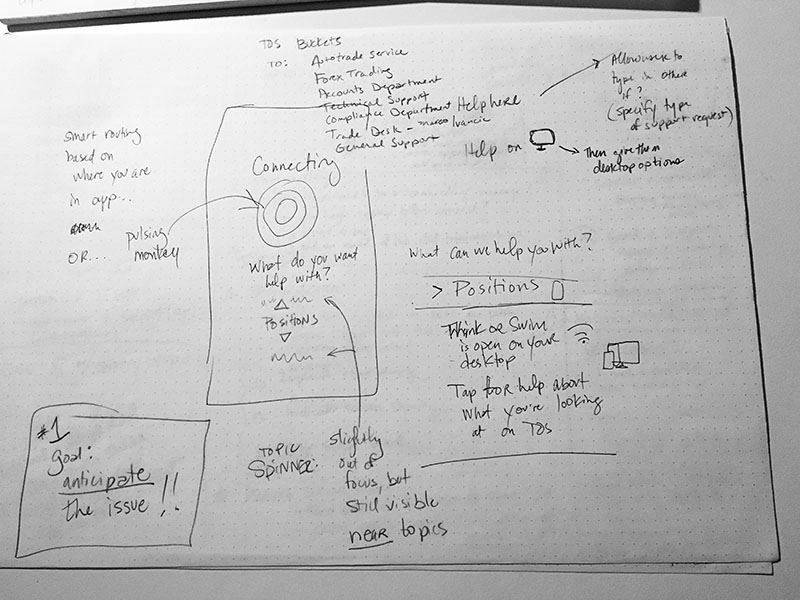 TOS Buckets
TO: Autotrade service
Forex Trading
Accounts Department
Technical Support
Compliance Department
Trade Desk -
General Support
Help here
Allow user to
type in others
if?
(specify type
of support request)
Help on
Then give them
desktop options
smart routing
based on
where you are
in app...
OR...
pulsing
monkey
Connecting
What do you want
help with?
Positions
What can we help you with?
> Positions
Think or Swim
is open on your
desktop
Tap for help about
what you're looking
at on TOS
#1
goal:
anticipate
the issue!!
TOPIC
SPINNER:
slightly
out of
focus, but
still visible
near topics